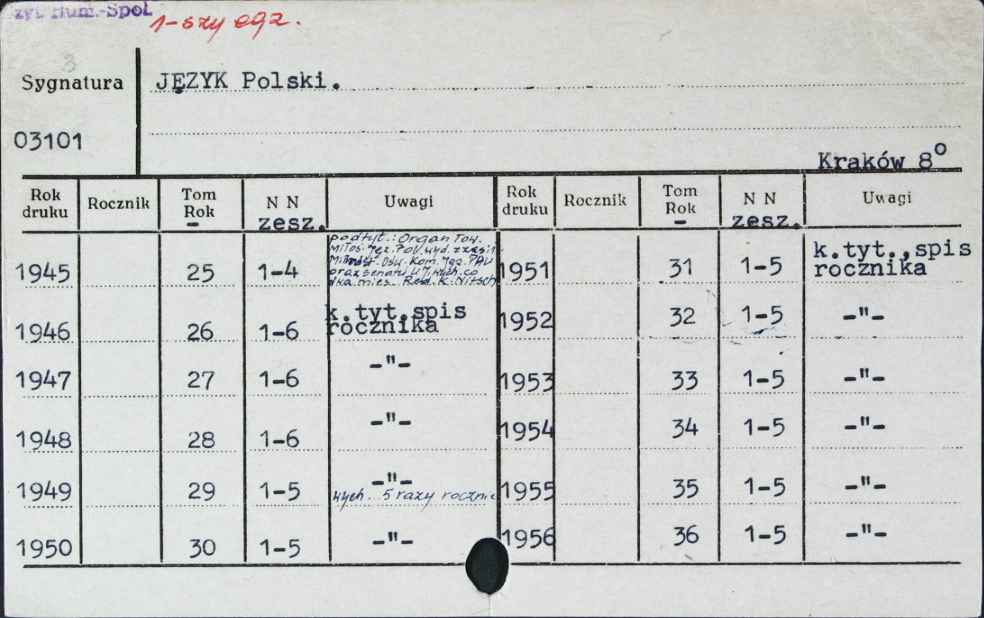 Hum.-Społ.
1-szy egz.
3
Sygnatura
JĘZYK Polski.
03101
Kraków 8°
Rok druku Rocznik Tom Rok N N zesz. Uwagi Rok druku Rocznik Tom Rok N N zesz. Uwagi
podtyt.: Organ Tow.
Miłoś. Jęz. Pol. wyd. z zasił.
Ośw. Kom. Jęz. PAU
oraz senatu UJ, wych. co
dwa mies. Red. K. Nitsch
1945 25 1-4
1951 31 1-5 k.tyt.,spis
rocznika
1946 26 1-6 k.tyt.spis
rocznika
1952 32 1-5 -"-
1947 27 1-6 -"- 1953 33 1-5 -"-
1948 28 1-6 -"- 1954 34 1-5 -"-
1949 29 1-5 -"- 1955 35 1-5 -"-
wych. 5 razy rocznie
1950 30 1-5 -"- 1956 36 1-5 -"-